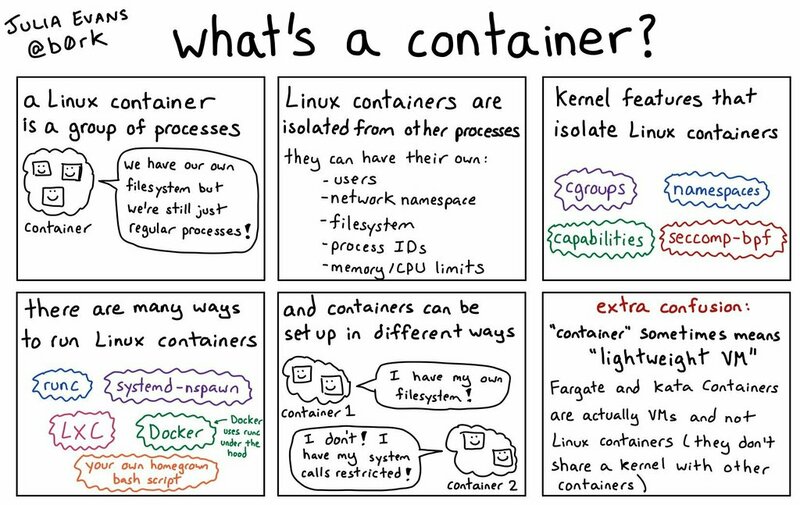 JULIA EVANS
@b0rk
what's a container?
a Linux container
is a group of processes
we have our own
filesystem but
we're still just
regular processes!
container
Linux containers are
isolated from other processes
they can have their own:
- users
- network namespace
- filesystem
- process IDs
- memory/CPU limits
Kernel features that
isolate Linux containers
cgroups
namespaces
capabilities
seccomp-bpf
there are many ways
to run Linux containers
runc
systemd-nspawn
LXC
Docker
Docker
uses runc
under the
hood
your own homegrown
bash script
and containers can be
set up in different ways
I have my own
filesystem!
container 1
I don't! I
have my system
calls restricted!
container 2
extra confusion:
"container" sometimes means
"lightweight VM"
Fargate and Kata Containers
are actually VMs and not
Linux containers (they don't
share a kernel with other
containers)